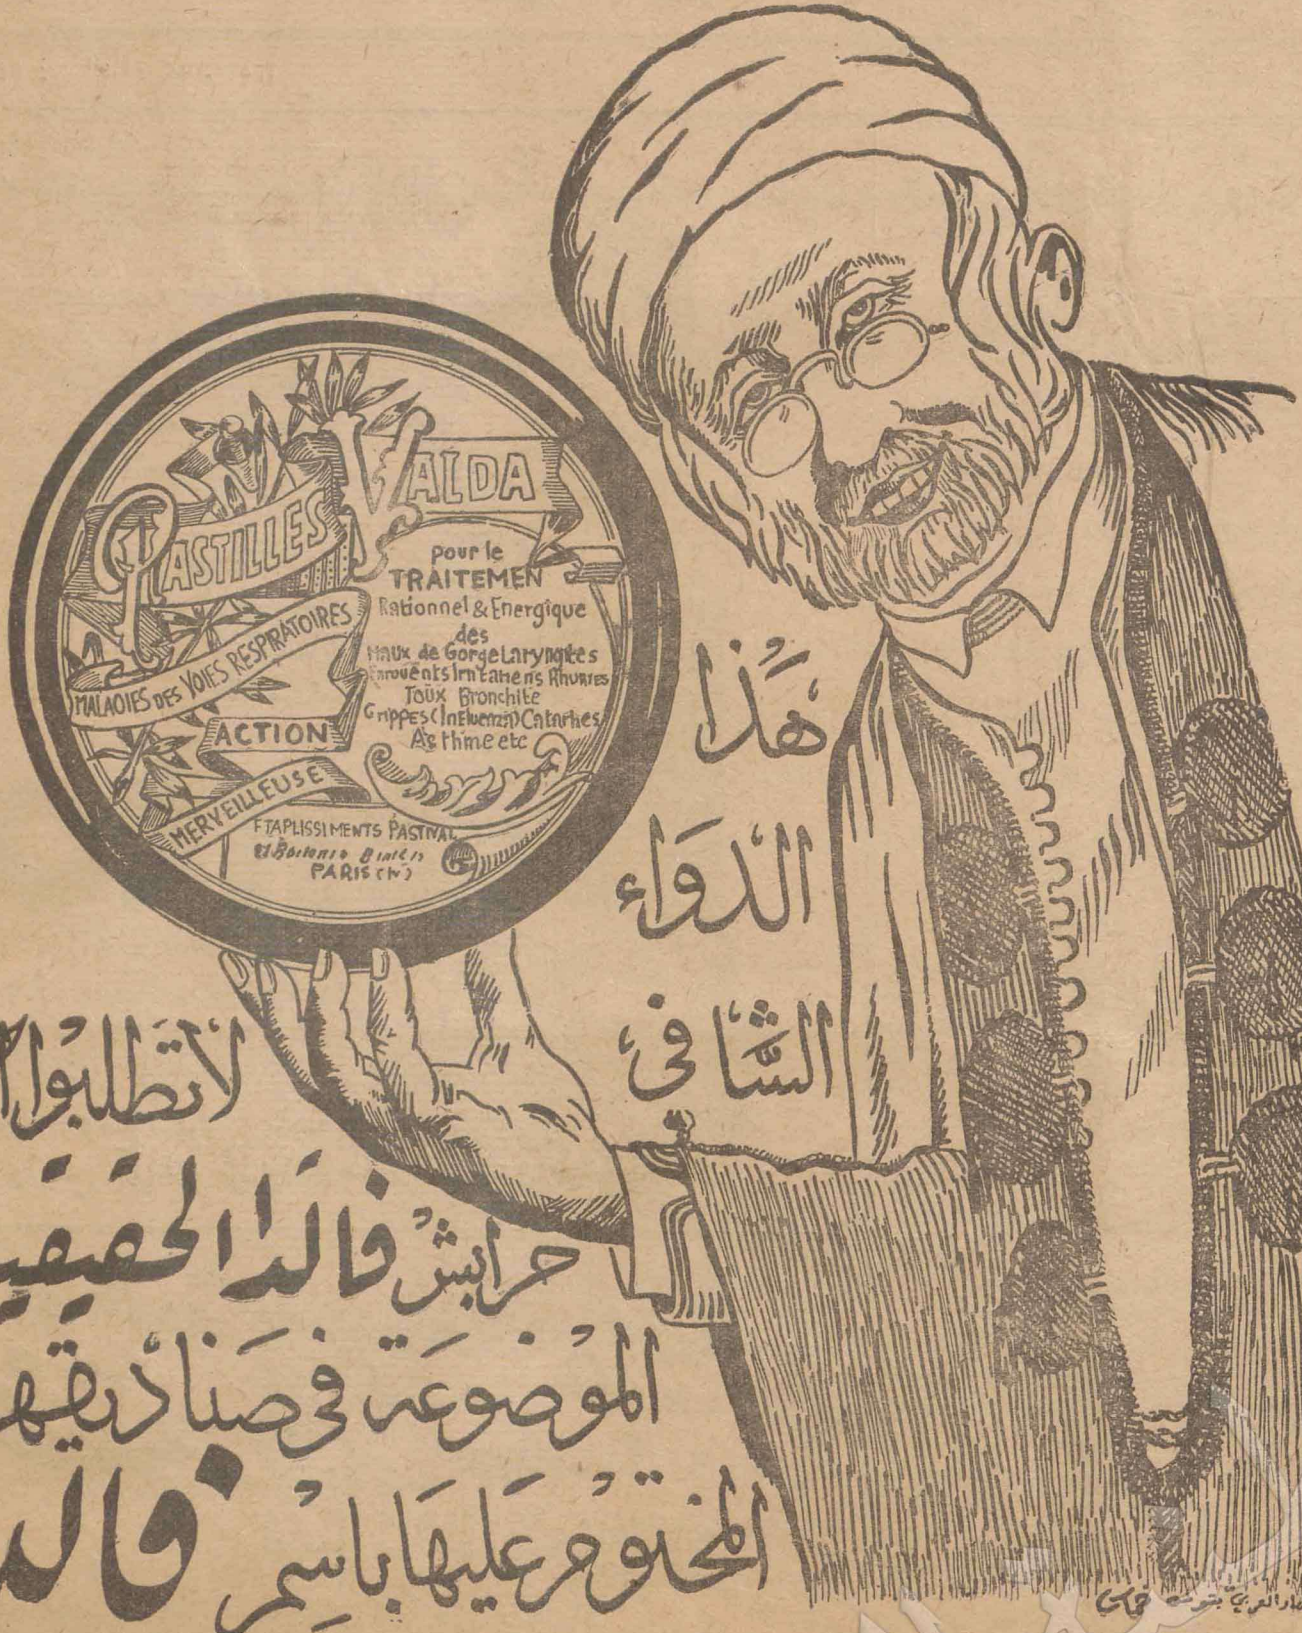 PASTILLES VALDA
pour le
TRAITEMEN
Rationnel & Energique
des
Maux de Gorge Laryngites
Toux Bronchite
Grippes (Influenza) Catarrhes
Asthme etc
MALADIES DES VOIES RESPIRATOIRES
ACTION
MERVEILLEUSE
ETAPLISSIMENTS PASTIVAL
PARIS
هَذا
الدَوَاء
الشَافي
لأتَطلبوا
حرابش فالدا الحقيقي
الموْضوعَة في صَناديقه
المختوم عَليهَا باسِم فالد